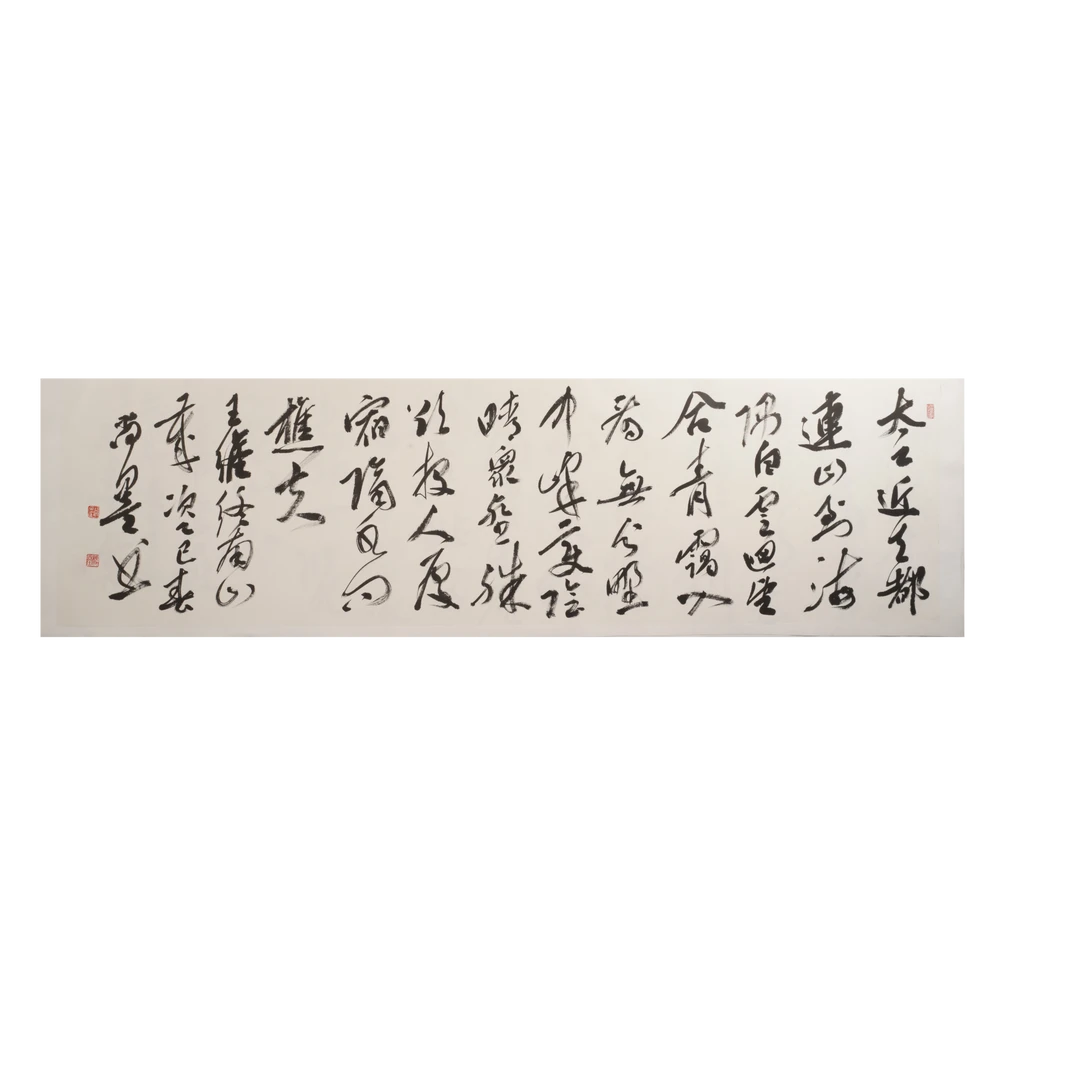 太乙近天都
連山到海
隅白雲迴望
合青靄入
看無分野
中峰變陰
晴眾壑殊
欲投人處
宿隔水問
樵夫
王維終南山
歲次乙巳春
尚墨书